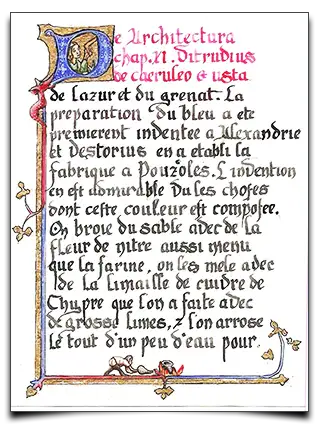 De Architectura
chap. XI. Vitruvius
De cæruleo & usta
de l'azur et du grenat. La
preparation du bleu a ete
premierent inventee a Alexandrie
et Vestorius en a etabli la
fabrique a Pouzoles. L'invention
en est admirable Vu les choses
dont ceste couleur est composee.
On broie du sable avec de la
fleur de nitre aussi menu
que la farine, on les mele avec
de la limaille de cuivre de
Chypre que l'on a faite avec
de grosse limes, & l'on arrose
le tout d'un peu d'eau pour.